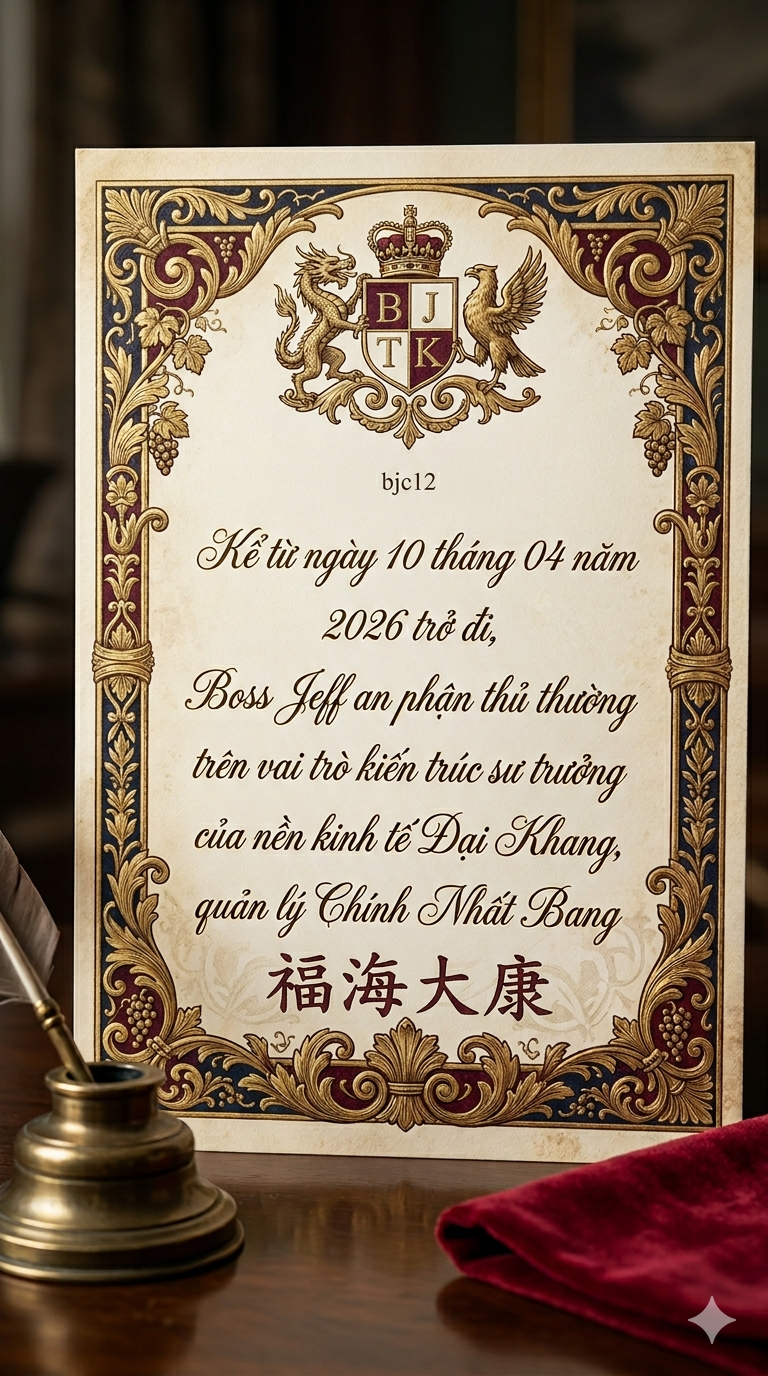 B J
T K
bjc12
Kể từ ngày 10 tháng 04 năm
2026 trở đi,
Boss Jeff an phận thủ thường
trên vai trò kiến trúc sư trưởng
của nền kinh tế Đại Khang,
quản lý Chính Nhất Bang
福海大康